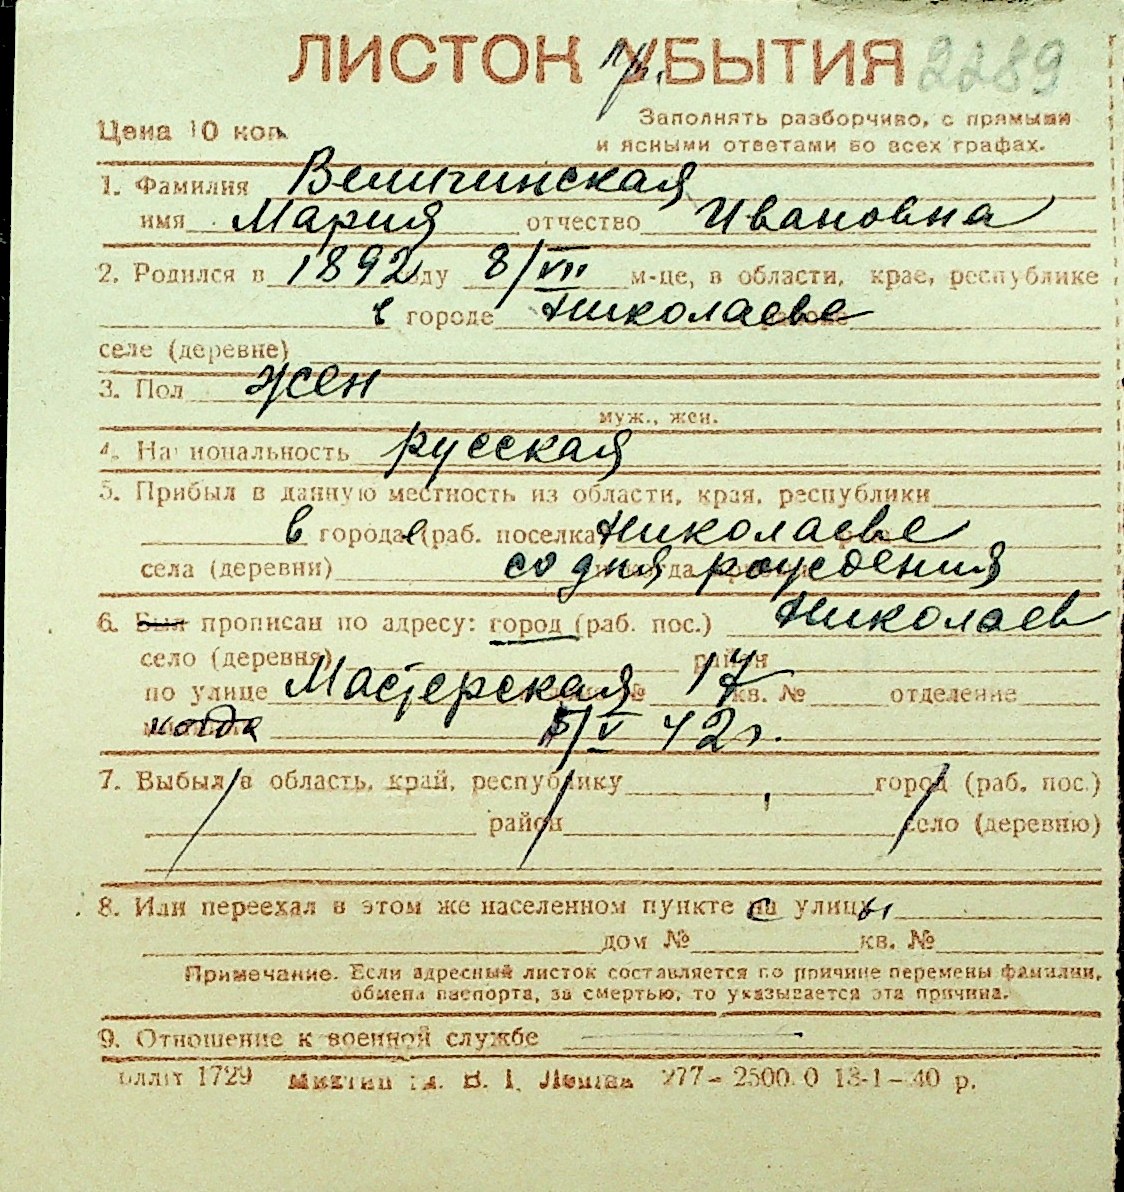 ЛИСТОК УБЫТИЯ 2289
пр.
Цена 10 коп.
Заполнять разборчиво, с прямыми
и ясными ответами во всех графах.
1. Фамилия Величинская
имя Мария отчество Ивановна
2. Родился в 1892 году 8/VII м-це, в области, крае, республике
в городе Николаеве
селе (деревне)
3. Пол жен
муж., жен.
4. Национальность русская
5. Прибыл в данную местность из области, края, республики
в города е (раб. поселка) Николаеве
села (деревни) со дня рождения
6. Был прописан по адресу: город (раб. пос.) Николаев
село (деревня) район
по улице Мастерская 17 кв. № отделение
когда 5/V 42 г.
7. Выбыл в область, край, республику город (раб. пос.)
район село (деревню)
8. Или переехал в этом же населенном пункте с улицы
дом № кв. №
Примечание. Если адресный листок составляется по причине перемены фамилии,
обмена паспорта, за смертью, то указывается эта причина.
9. Отношение к военной службе
1729 277 – 2500.0 13-1 – 40 р.